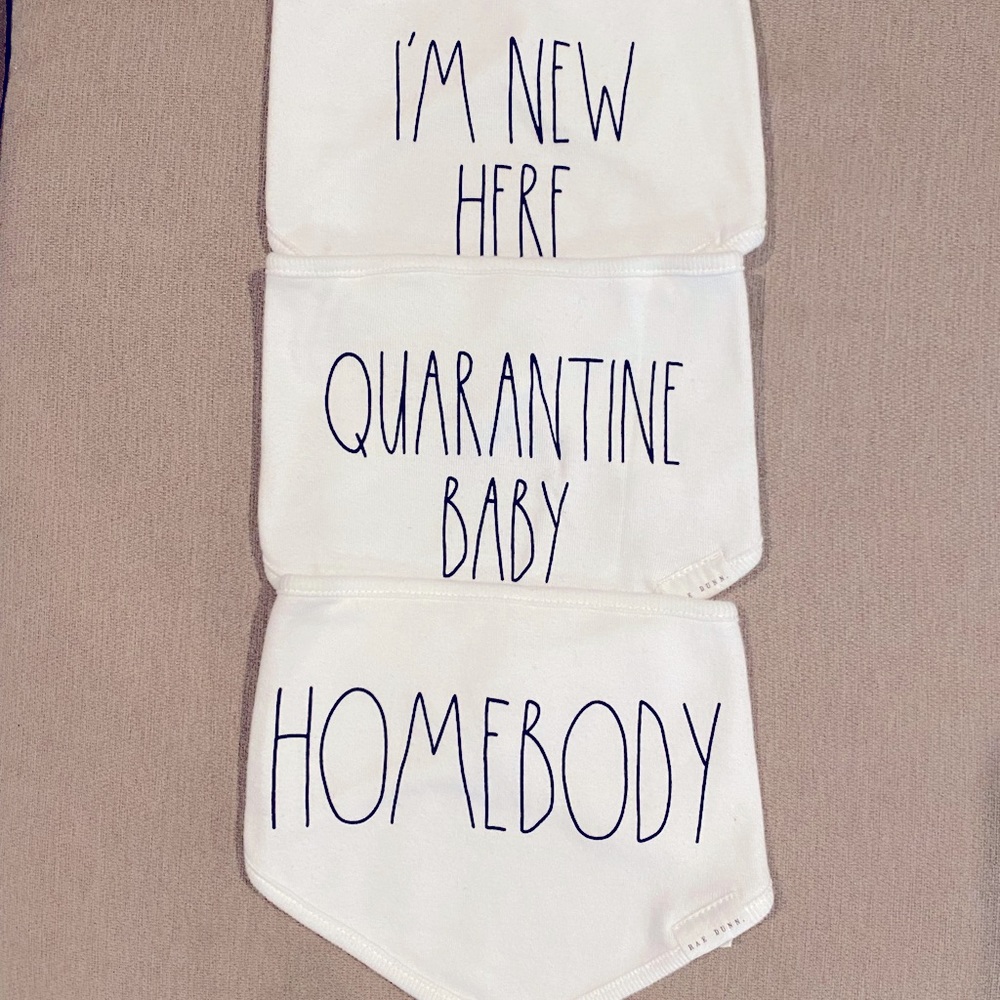 I'M NEW
HERE
QUARANTINE
BABY
RAE DUNN.
HOMEBODY
RAE DUNN.